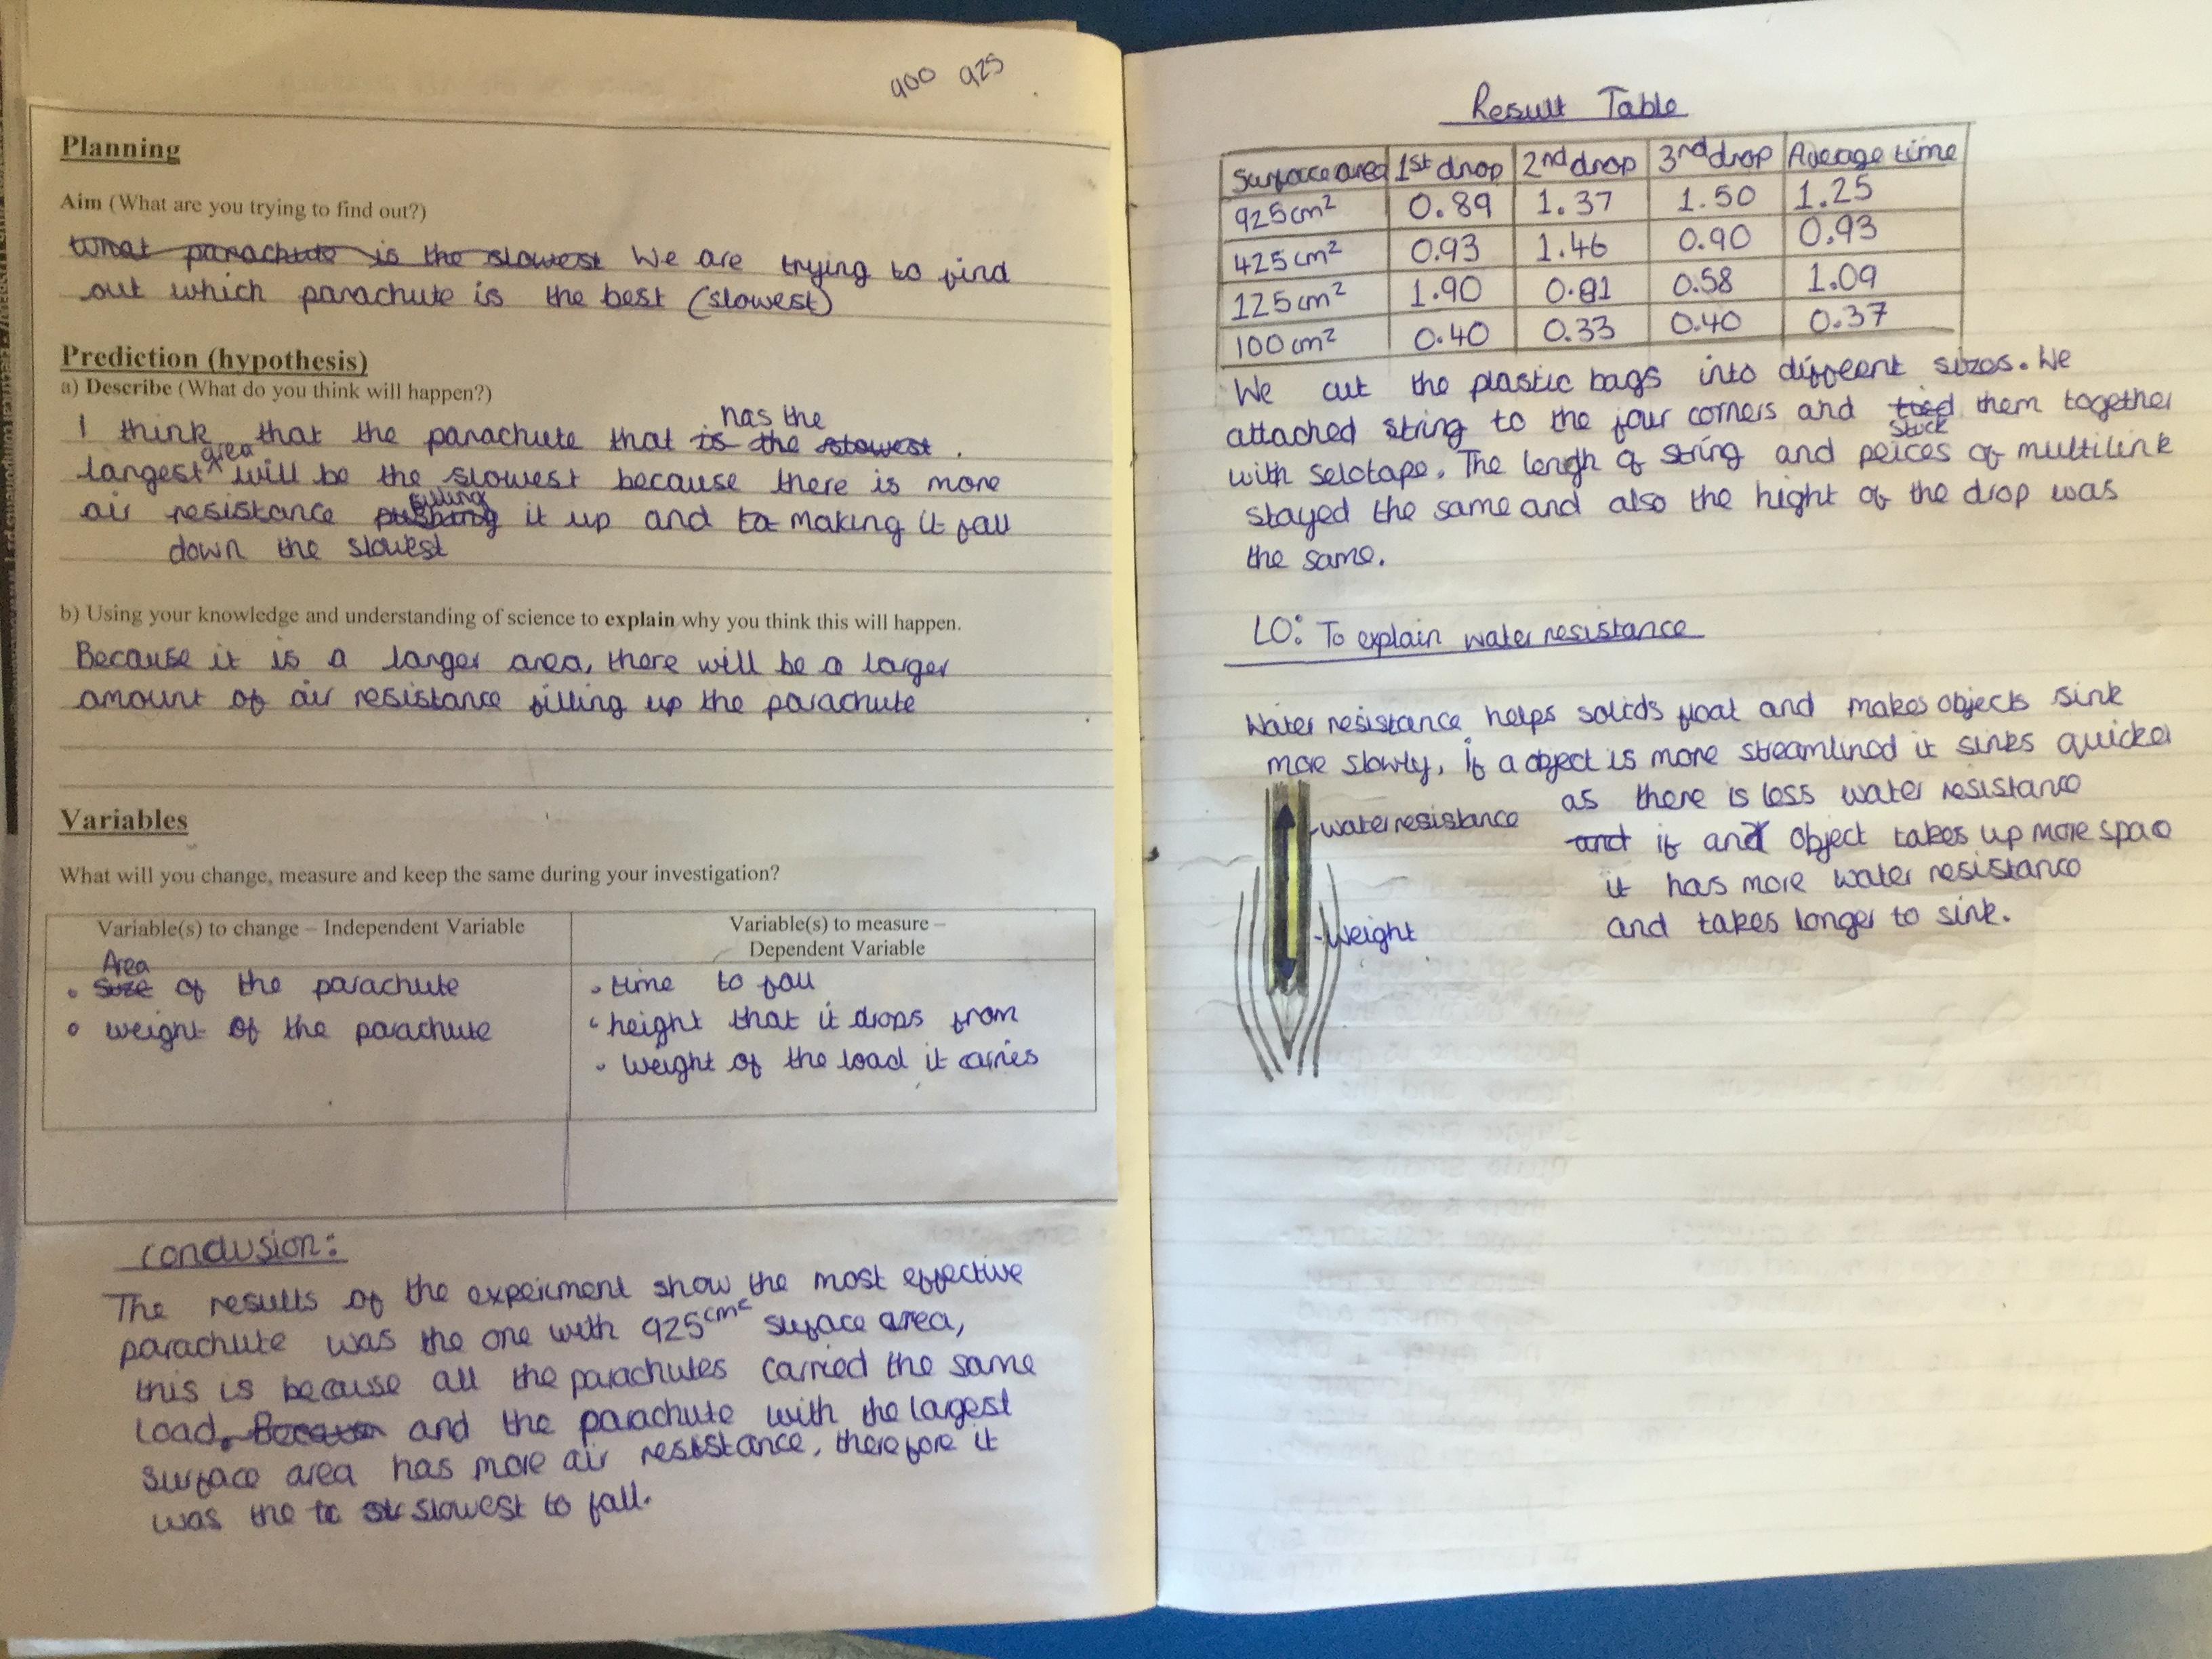 900 925
Planning
Aim (What are you trying to find out?)
What parachute is the slowest We are trying to find
out which parachute is the best (slowest)
Prediction (hypothesis)
a) Describe (What do you think will happen?)
has the
I think that the parachute that is the slowest .
area
largest will be the slowest because there is more
filling
air resistance pushing it up and to making it fall
down the slowest
b) Using your knowledge and understanding of science to explain why you think this will happen.
Because it is a larger area, there will be a larger
amount of air resistance filling up the parachute
Variables
What will you change, measure and keep the same during your investigation?
Variable(s) to change – Independent Variable
Variable(s) to measure –
Dependent Variable
Area
• Size of the parachute
• weight of the parachute
• time to fall
• height that it drops from
• weight of the load it carries
Conclusion:
The results of the expeirment show the most effective
parachute was the one with 925cm² surface area,
this is because all the parachutes carried the same
load. and the parachute with the largest
surface area has more air resistance, therefore it
was the slowest to fall.
Result Table
Surface area 1st drop 2nd drop 3rd drop Average time
925cm² 0.89 1.37 1.50 1.25
425cm² 0.93 1.46 0.90 0.93
125cm² 1.90 0.81 0.58 1.09
100cm² 0.40 0.33 0.40 0.37
We cut the plastic bags into different sizes. We
attached string to the four corners and tied them together
stuck
with selotape. The lengh of string and peices of multilink
stayed the same and also the hight of the drop was
the same.
LO: To explain water resistance
Water resistance helps solids float and makes objects sink
more slowly, if a object is more streamlined it sinks quicker
as there is less water resistance
and if an object takes up more space
it has more water resistance
and takes longer to sink.
-water resistance
-weight